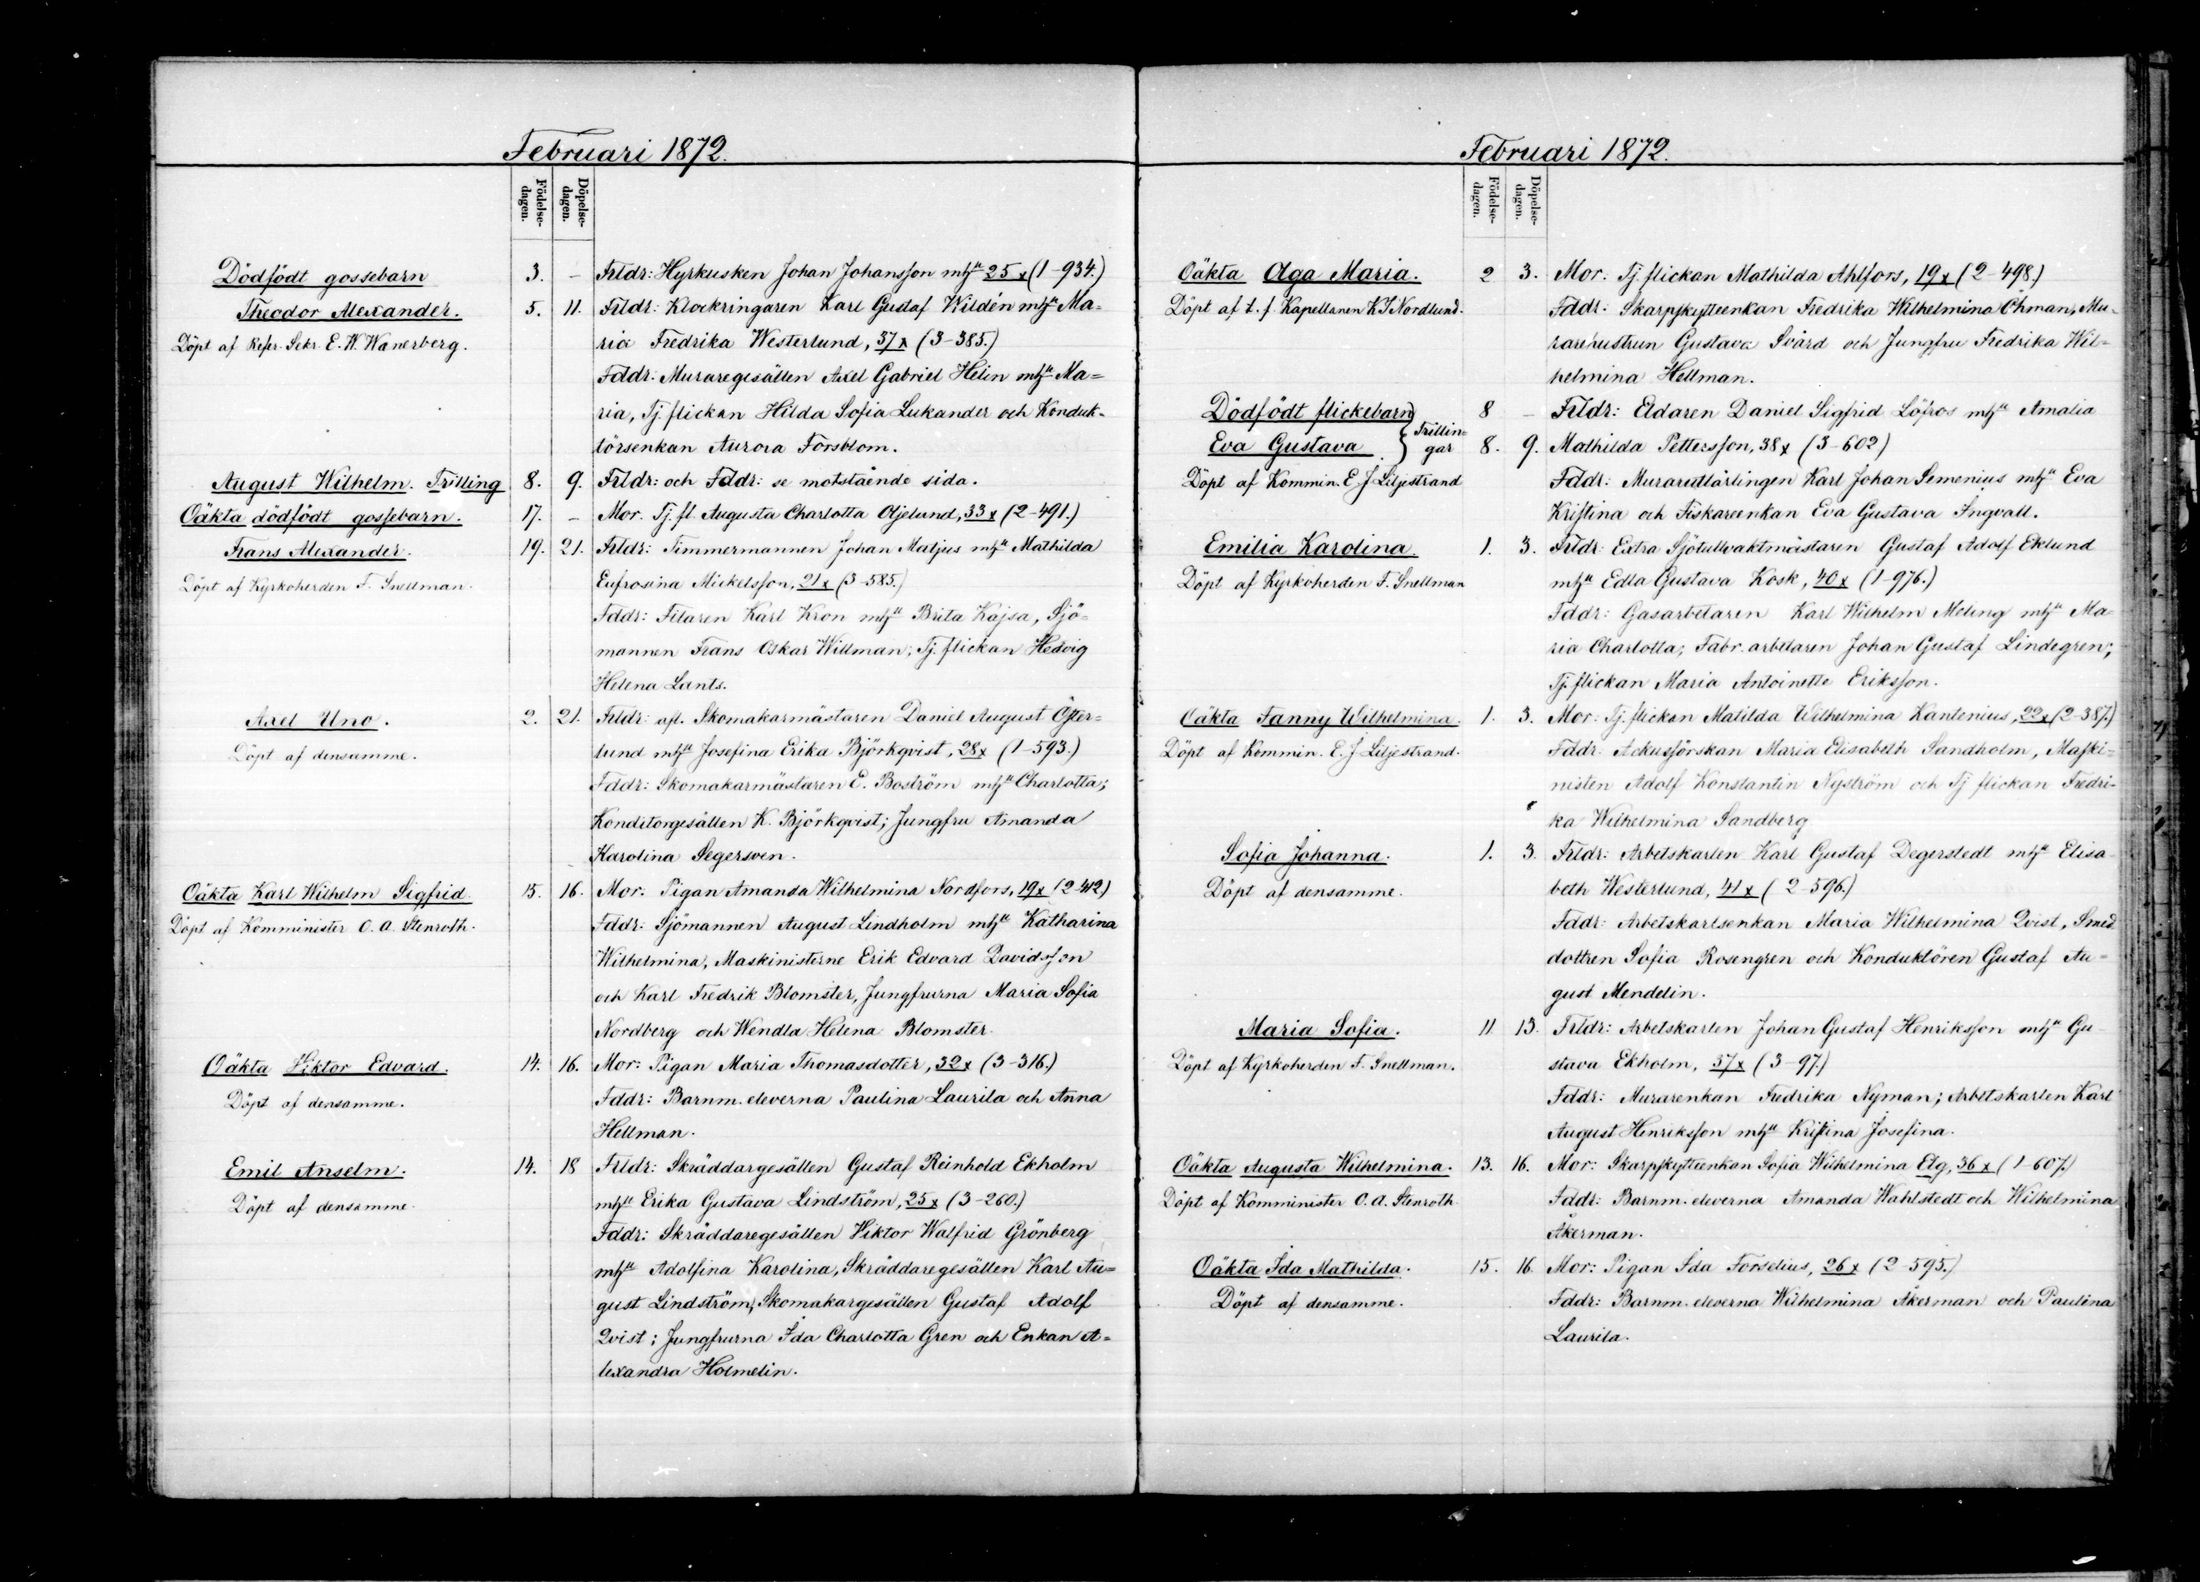 Februari 1872.
Födelse-
dagen.
Döpelse-
dagen.
Dödfödt gossebarn 3. – Frldr: Hyrkusken Johan Johansson mhu 25 x (1-934.)
Theodor Alexander. 5. 11. Frldr: Klockringaren Karl Gustaf Wildén mhu Ma-
Döpt af Refer. Sekr. E. W. Wanerberg. ria Fredrika Westerlund, 37 x (3-385.)
Fddr: Muraregesällen Axel Gabriel Helin mhu Ma=
ria, Tj. flickan Hilda Sofia Lukander och Konduk-
törsenkan Aurora Forsblom.
August Wilhelm. Trilling 8. 9. Frldr: och Fddr: se motstående sida.
Oäkta dödfödt gossebarn. 17. – Mor. Tj. fl. Augusta Charlotta Öljelund, 33 x (2-491.)
Frans Alexander. 19. 21. Frldr: Timmermannen Johan Matjus mhu Mathilda
Döpt af Kyrkoherden F. Snellman. Eufrosina Mickelsson, 21 x (3-585.)
Fddr: Filaren Karl Kron mhu Brita Kajsa, Sjö-
mannen Frans Oskar Willman; Tj. flickan Hedvig
Helena Lants.
Axel Uno. 2. 21. Frldr: afl. Skomakarmästaren Daniel August Öster-
Döpt af densamme. lund mhu Josefina Erika Björkqvist, 28 x (1-593.)
Fddr: Skomakarmästaren E. Boström mhu Charlotta;
Konditorgesällen K. Björkqvist; Jungfru Amanda
Karolina Segersven.
Oäkta Karl Wilhelm Sigfrid. 15. 16. Mor: Pigan Amanda Wilhelmina Nordfors, 19 x (2-412)
Döpt af Komminister O. A. Stenroth. Fddr: Sjömannen August Lindholm mhu Katharina
Wilhelmina, Maskinisterne Erik Edvard Davidsson
och Karl Fredrik Blomster, Jungfrurna Maria Sofia
Nordberg och Wendla Helena Blomster.
Oäkta Viktor Edvard. 14. 16. Mor: Pigan Maria Thomasdotter, 32 x (3-316.)
Döpt af densamme. Fddr: Barnm. eleverna Paulina Laurila och Anna
Hellman.
Emil Anselm. 14. 18 Frldr: Skräddargesällen Gustaf Reinhold Ekholm
Döpt af densamme. mhu Erika Gustava Lindström, 25 x (3-260.)
Fddr: Skräddaregesällen Viktor Walfrid Grönberg
mhu Adolfina Karolina, Skräddaregesällen Karl Au=
gust Lindström, Skomakargesällen Gustaf Adolf
Qvist; Jungfrurna Ida Charlotta Gren och Enkan A=
lexandra Holmelin.
Februari 1872.
Födelse-
dagen.
Döpelse-
dagen.
Oäkta Olga Maria. 2 3. Mor. Tj. flickan Mathilda Ahlfors, 19 x (2-498.)
Döpt af t. f. Kapellanen K J Nordlund. Fddr: Skarpskytteenkan Fredrika Wilhelmina Öhman, Mu-
rarehustrun Gustava Svärd och Jungfru Fredrika Wil=
helmina Hellman.
Dödfödt flickebarn 8 – Frldr: Eldaren Daniel Sigfrid Löfros mhu Amalia
Eva Gustava } Trillin= gar 8. 9. Mathilda Pettersson, 38 x (3-602)
Döpt af Kommin. E. J Liljestrand Fddr: Murarelärlingen Karl Johan Semenius mhu Eva
Kristina och Fiskareenkan Eva Gustava Ingvall.
Emilia Karolina 1. 3. Frldr: Extra Sjötullvaktmästaren Gustaf Adolf Eklund
Döpt af Kyrkoherden F. Snellman mhu Edla Gustava Kosk, 40 x (1-976.)
Fddr: Gasarbetaren Karl Wilhelm Meling mhu Ma-
ria Charlotta; Fabr. arbetaren Johan Gustaf Lindegren;
Tj. flickan Maria Antoinette Eriksson.
Oäkta Fanny Wilhelmina. 1. 3. Mor: Tj. flickan Matilda Wilhelmina Kantenius, 22 x (2-387.)
Döpt af Kommin. E. J Liljestrand. Fddr: Ackusjörskan Maria Elisabeth Sandholm, Maski-
nisten Adolf Konstantin Nyström och Tj flickan Fredri-
ka Wilhelmina Sandberg
Sofia Johanna. 1. 3. Frldr: Arbetskarlen Karl Gustaf Degerstedt mhu Elisa
Döpt af densamme. beth Westerlund, 41 x (2-596.)
Fddr: Arbetskarlsenkan Maria Wilhelmina Qvist, Smed
dottren Sofia Rosengren och Konduktören Gustaf Au=
gust Mendelin.
Maria Sofia. 11 13. Frldr: Arbetskarlen Johan Gustaf Henriksson mhu Gu
Döpt af Kyrkoherden F. Snellman. stava Ekholm, 37 x (3-97.)
Fddr: Murarenkan Fredrika Nyman; Arbetskarlen Karl
August Henriksson mhu Kristina Josefina.
Oäkta Augusta Wilhelmina. 13. 16. Mor: Skarpskytteenkan Sofia Wilhelmina Elg, 36 x (1-607.)
Döpt af Komminister O. A. Stenroth Fddr: Barnm. eleverna Amanda Wahlstedt och Wilhelmina
Åkerman.
Oäkta Ida Mathilda. 15. 16. Mor: Pigan Ida Forselius, 26 x (2-595.)
Döpt af densamme. Fddr: Barnm. eleverna Wilhelmina Åkerman och Paulina
Laurila.